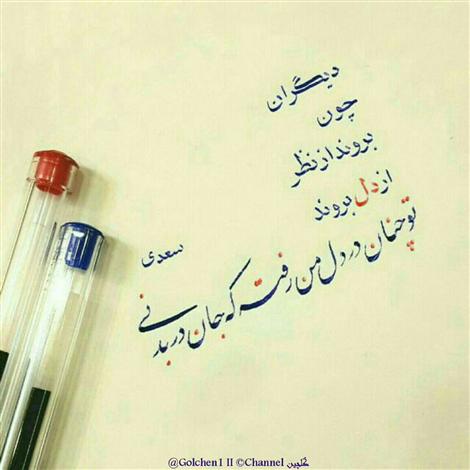 دیگران
چون
بروند از نظر
از دل بروند
تو چنان در دل من رفته که جان در بدنی
سعدی
@Golchen1 II ©Channel گلچین